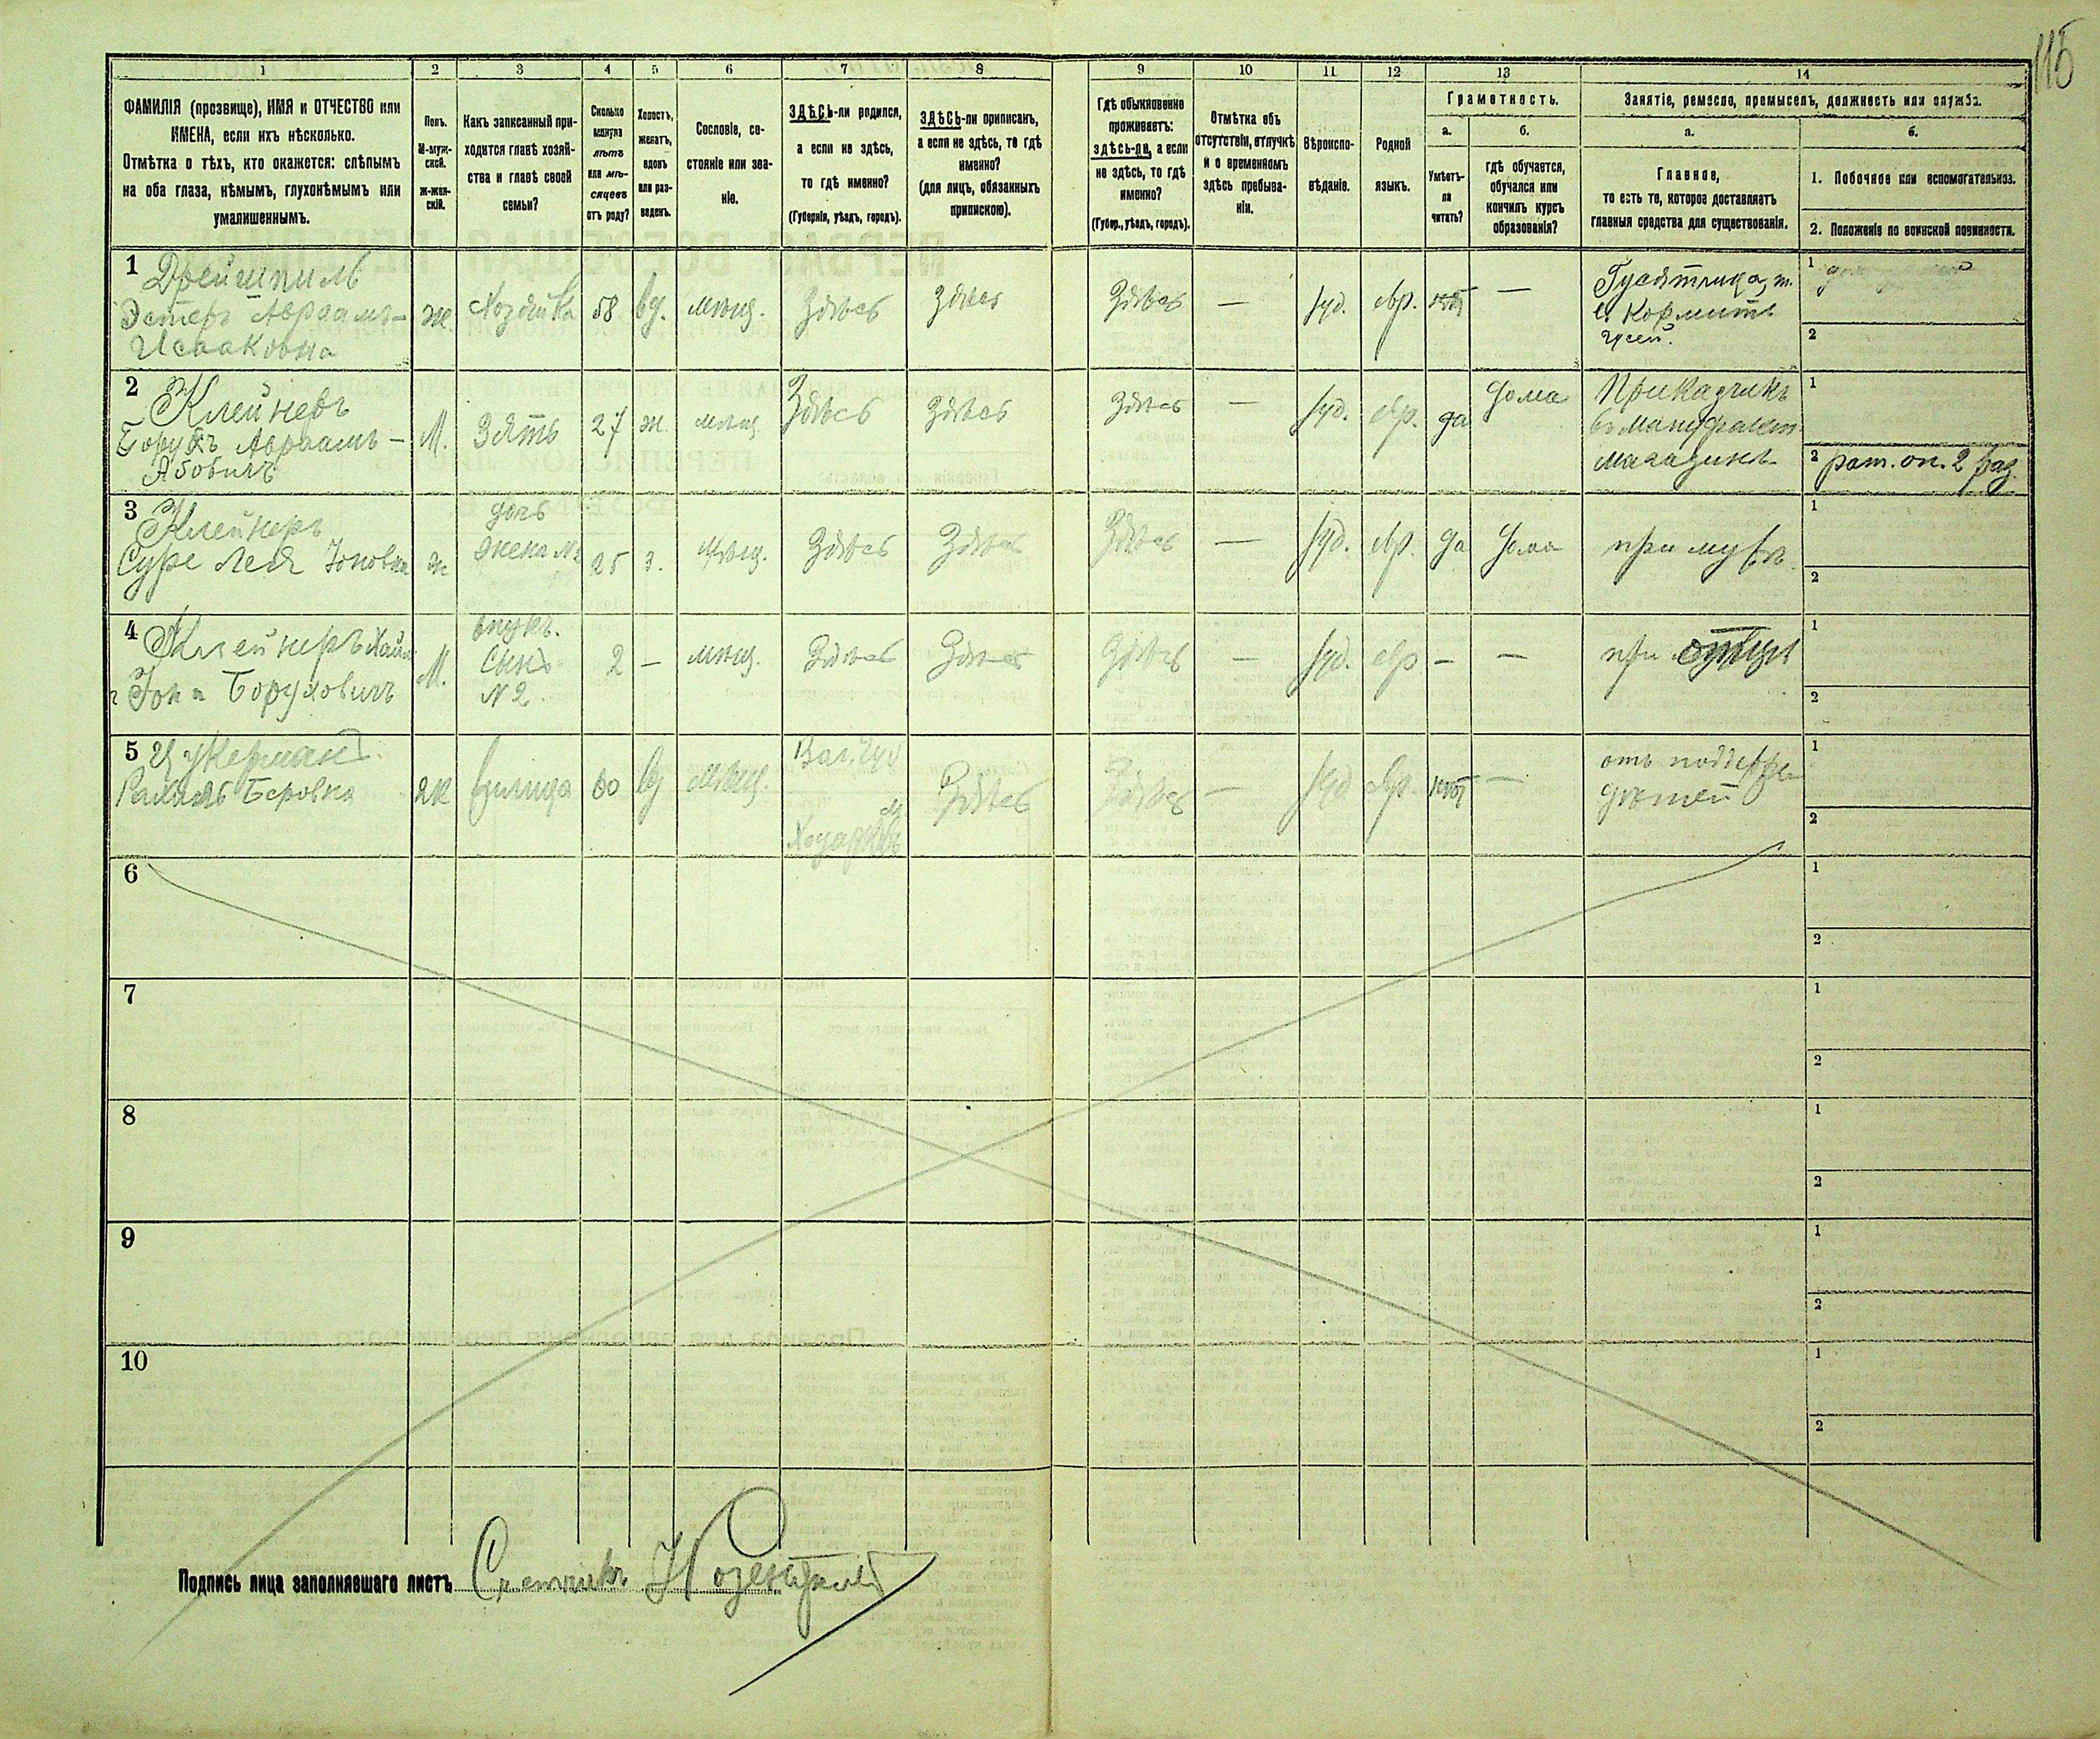 115
1 2 3 4 5 6 7 8 9 10 11 12 13 14
ФАМИЛІЯ (прозвище), ИМЯ и ОТЧЕСТВО или
ИМЕНА, если ихъ нѣсколько.
Отмѣтка о тѣхъ, кто окажется: слѣпымъ
на оба глаза, нѣмымъ, глухонѣмымъ или
умалишеннымъ.
Полъ.
М-муж-
ской.
Ж-жен-
скій.
Какъ записанный при-
ходится главѣ хозяй-
ства и главѣ своей
семьи?
Сколько
минуло
лѣтъ
или мѣ-
сяцевъ
отъ роду?
Холостъ,
женатъ,
вдовъ
или раз-
веденъ.
Сословіе, со-
стояніе или зва-
ніе.
ЗДѢСЬ-ли родился,
а если не здѣсь,
то гдѣ именно?
(Губернія, уѣздъ, городъ).
ЗДѢСЬ-ли приписанъ,
а если не здѣсь, то гдѣ
именно?
(для лицъ, обязанныхъ
припискою).
Гдѣ обыкновенно
проживаетъ:
здѣсь-ли, а если
не здѣсь, то гдѣ
именно?
(Губер., уѣздъ, городъ).
Отмѣтка объ
отсутствіи, отлучкѣ
и о временномъ
здѣсь пребыва-
ніи.
Вѣроиспо-
вѣданіе.
Родной
языкъ.
Грамотность.
а.
Умѣетъ-
ли
читать?
б.
гдѣ обучается,
обучался или
кончилъ курсъ
образованія?
Занятіе, ремесло, промыселъ, должность или служба.
а.
Главное,
то есть то, которое доставляетъ
главныя средства для существованія.
б.
1. Побочное или вспомогательное.
2. Положеніе по воинской повинности.
1 Дрейшпиль
Эстеръ Авраамъ-
Исааковна
ж Хозяйка 58 вд. мѣщ. Здѣсь Здѣсь Здѣсь — Іуд. евр. нѣтъ —
Гусятница, т.
е. кормитъ
гусей.
1
2
2 Клейнеръ
Борухъ Авраамъ-
Абовичъ
М. Зять 27 ж мѣщ. Здѣсь Здѣсь Здѣсь — Іуд. евр. да дома
Приказчикъ
въ мануфакт.
магазинѣ
1
2 рат. оп. 2 раз.
3 Клейнеръ
Суре Лея Іоновна
ж
дочь
жена №2
25 з. Мѣщ. Здѣсь Здѣсь Здѣсь — Іуд. евр. да дома при мужѣ
1
2
4 Клейнеръ Хаим
Іона Боруховичъ
М.
внукъ.
Сынъ
№2.
2 — мѣщ. Здѣсь Здѣсь Здѣсь — Іуд. евр — — при отцѣ
1
2
5 Цукерманъ
Рахиль Беровна
Ж 80 вд мѣщ.
Вол. губ
м
Здѣсь Здѣсь — Іуд евр. нѣтъ —
отъ
дѣтей
1
2
6
1
2
7
1
2
8
1
2
9
1
2
10
1
2
Подпись лица заполнявшаго листъ Счетчикъ